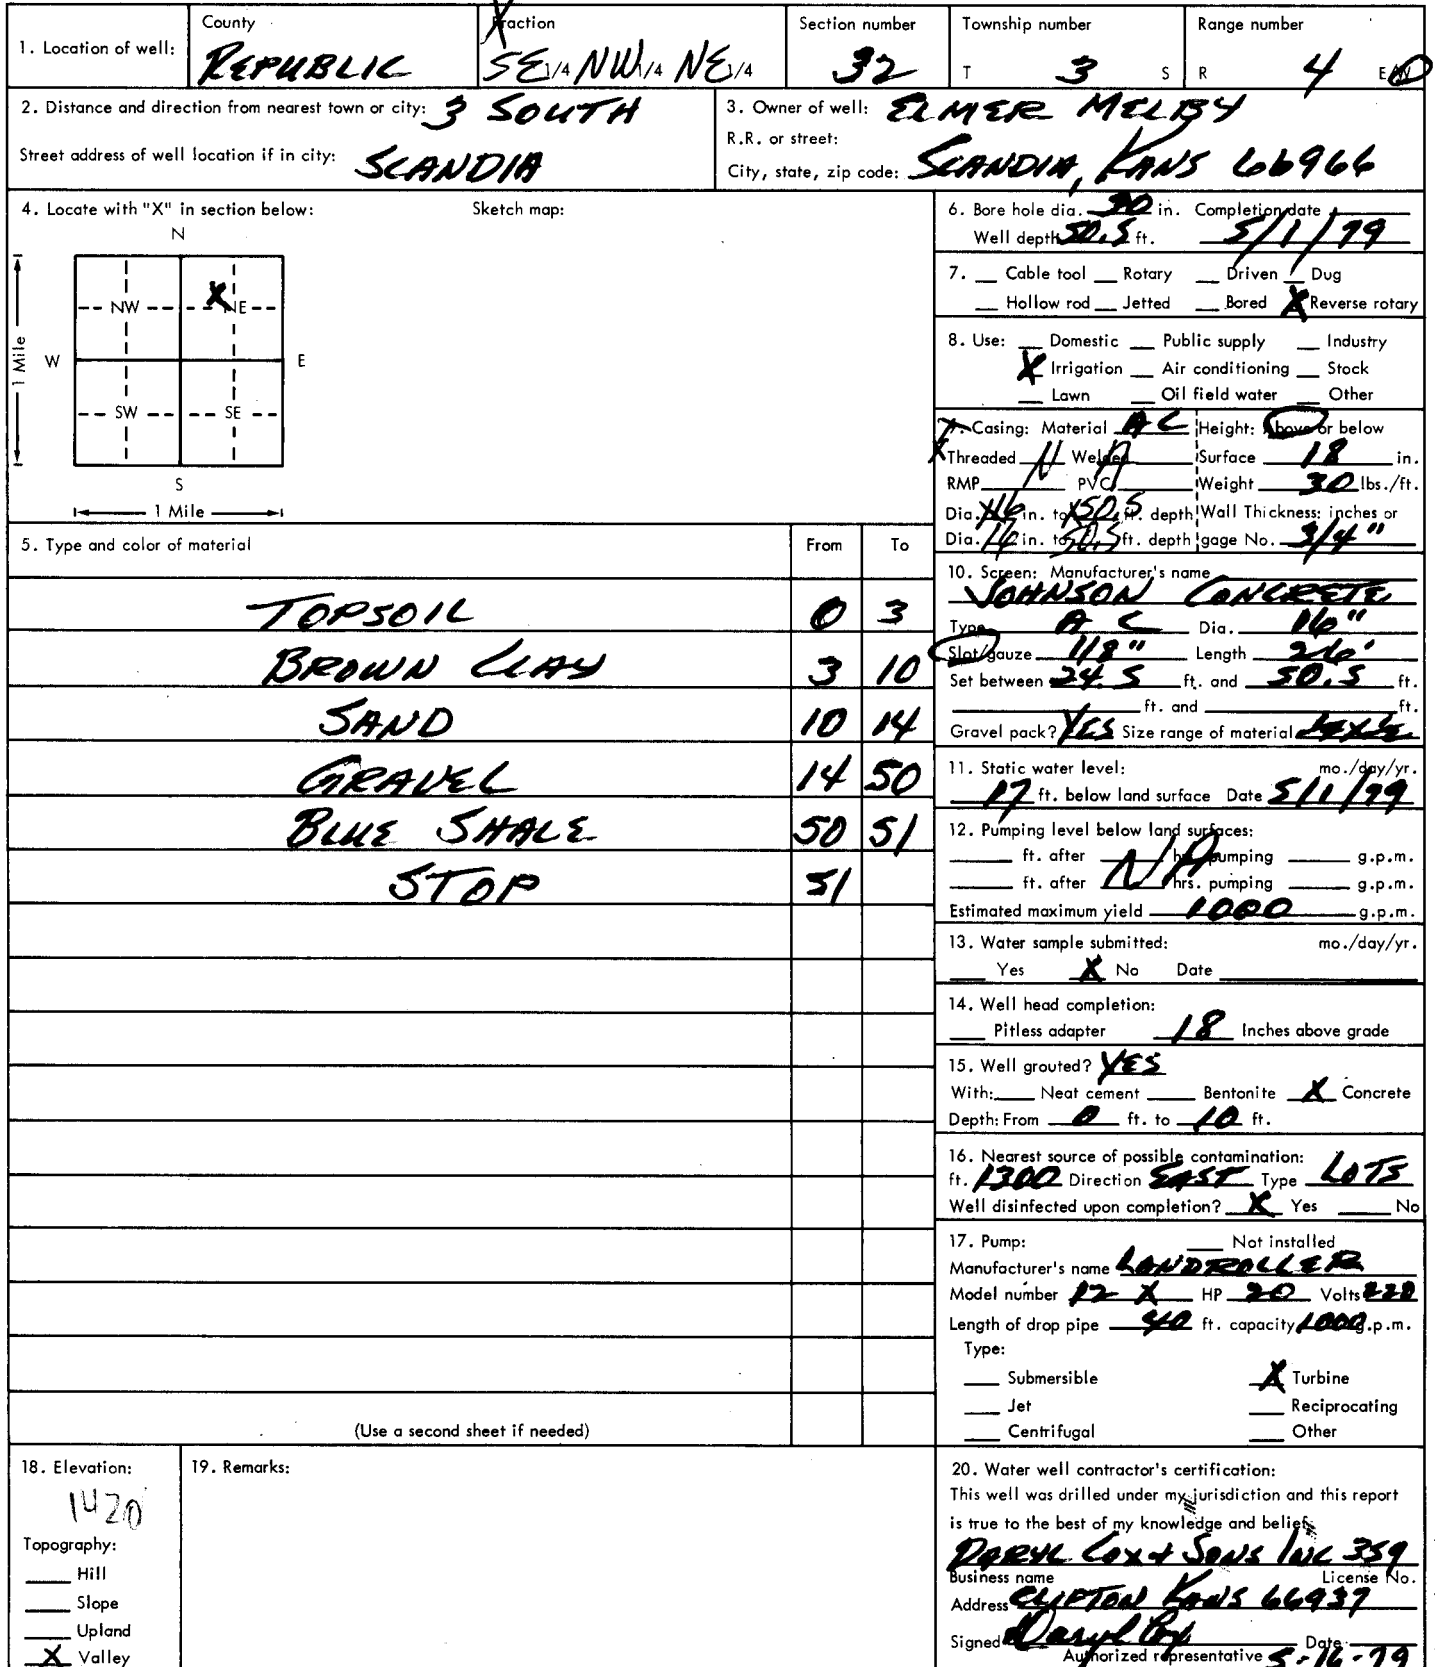 1. Location of well:
County
REPUBLIC
Fraction
SE 1/4 NW 1/4 NE 1/4
Section number
32
Township number
T 3 S
Range number
R 4 E/W
2. Distance and direction from nearest town or city: 3 SOUTH
Street address of well location if in city: SCANDIA
3. Owner of well: ELMER MELBY
R.R. or street:
City, state, zip code: SCANDIA, KANS 66966
4. Locate with "X" in section below:
Sketch map:
N
NW X NE
W E
1 Mile
SW SE
S
1 Mile
5. Type and color of material From To
TOPSOIL 0 3
BROWN CLAY 3 10
SAND 10 14
GRAVEL 14 50
BLUE SHALE 50 51
STOP 51
(Use a second sheet if needed)
6. Bore hole dia. 30 in. Completion date
Well depth 50.5 ft. 5/1/79
7. __ Cable tool __ Rotary __ Driven __ Dug
__ Hollow rod __ Jetted __ Bored X Reverse rotary
8. Use: __ Domestic __ Public supply __ Industry
X Irrigation __ Air conditioning __ Stock
__ Lawn __ Oil field water __ Other
9. Casing: Material A C Height: Above or below
Threaded N Welded A Surface 18 in.
RMP PVC Weight 30 lbs./ft.
Dia. 16 in. to 50.5 ft. depth Wall Thickness: inches or
Dia. 16 in. to 50.5 ft. depth gage No. 3/4"
10. Screen: Manufacturer's name
JOHNSON CONCRETE
Type A C Dia. 16"
Slot/gauze 1/8" Length 26'
Set between 24.5 ft. and 50.5 ft.
____ ft. and ____ ft.
Gravel pack? YES Size range of material
11. Static water level: mo./day/yr.
17 ft. below land surface Date 5/1/79
12. Pumping level below land surfaces:
____ ft. after ____ hrs. pumping ____ g.p.m.
____ ft. after NA hrs. pumping ____ g.p.m.
Estimated maximum yield 1000 g.p.m.
13. Water sample submitted: mo./day/yr.
__ Yes X No Date
14. Well head completion:
__ Pitless adapter 18 Inches above grade
15. Well grouted? YES
With: __ Neat cement __ Bentonite X Concrete
Depth: From 0 ft. to 10 ft.
16. Nearest source of possible contamination:
ft. 1300 Direction EAST Type LOTS
Well disinfected upon completion? X Yes __ No
17. Pump: __ Not installed
Manufacturer's name LANDROLLER
Model number 12 X HP 20 Volts 220
Length of drop pipe 40 ft. capacity 1000 g.p.m.
Type:
__ Submersible X Turbine
__ Jet __ Reciprocating
__ Centrifugal __ Other
18. Elevation:
1420
Topography:
__ Hill
__ Slope
__ Upland
X Valley
19. Remarks:
20. Water well contractor's certification:
This well was drilled under my jurisdiction and this report
is true to the best of my knowledge and belief.
DARYL COX & SONS INC 359
Business name License No.
Address CLIFTON KANS 66937
Signed Daryl Cox Date
Authorized representative 5-16-79